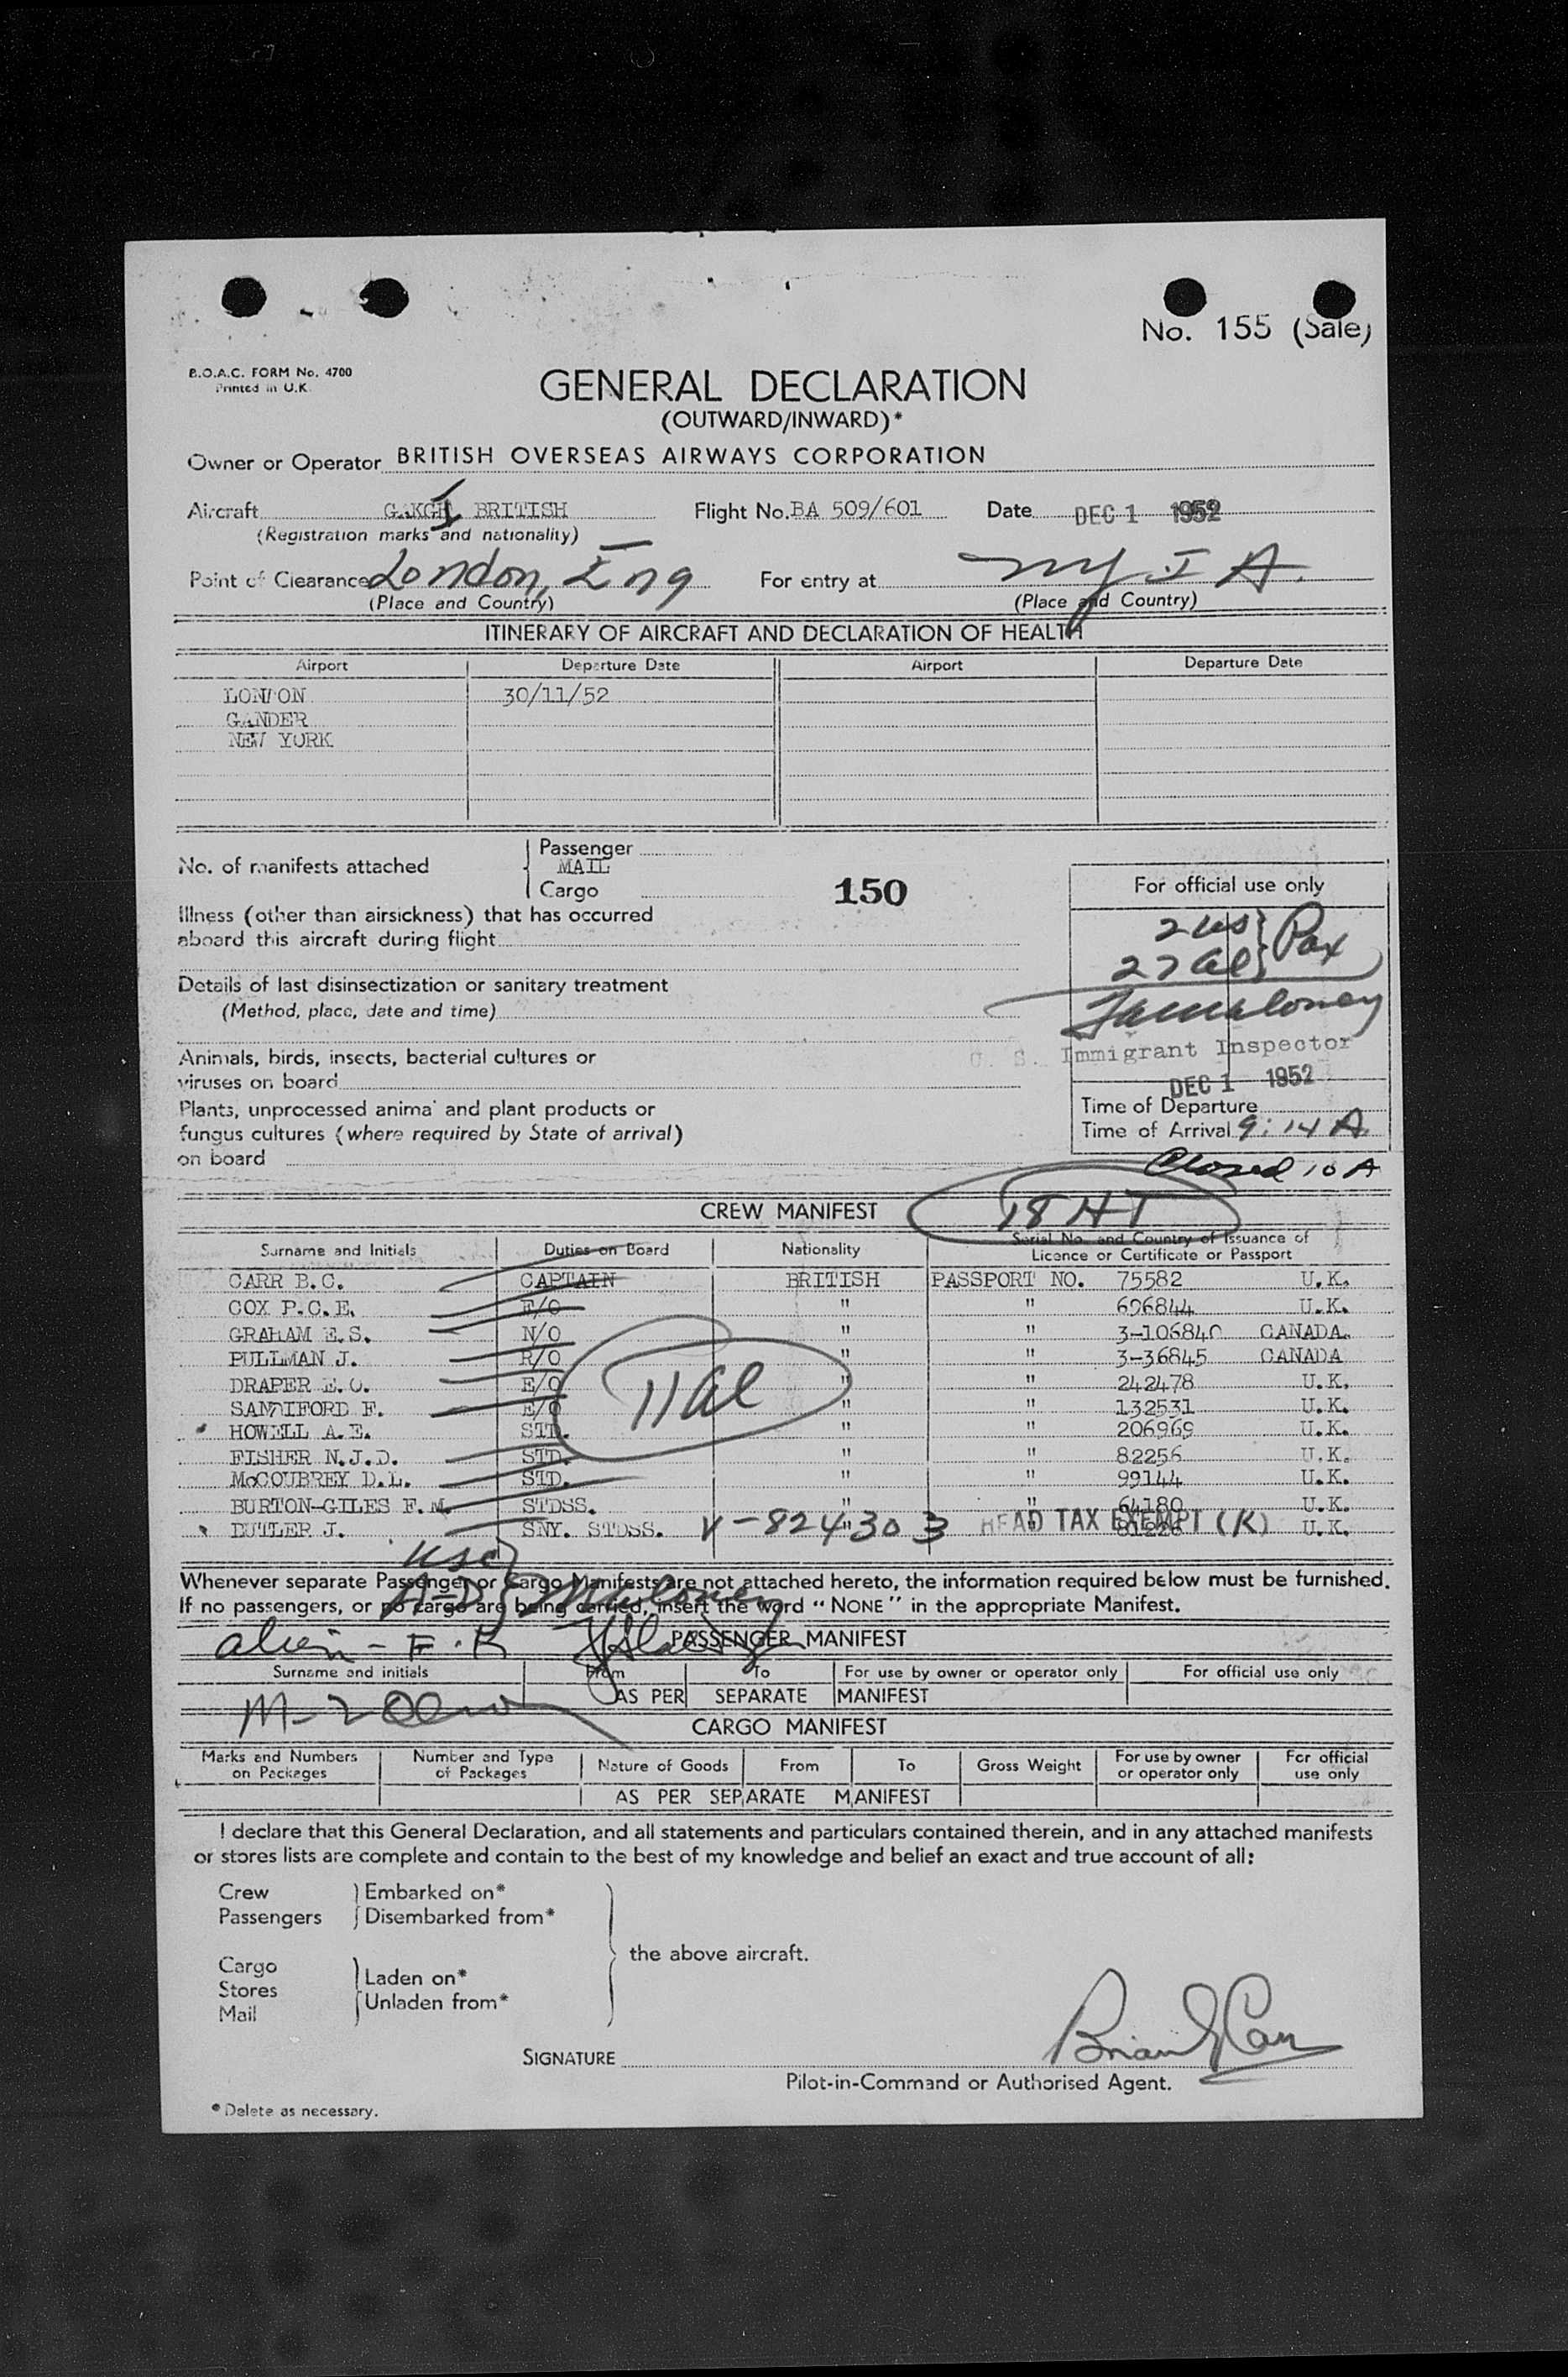 No. 155 (Sale)
B.O.A.C. FORM No. 4700
Printed in U.K.
GENERAL DECLARATION
(OUTWARD/INWARD)*
Owner or Operator BRITISH OVERSEAS AIRWAYS CORPORATION
Aircraft BRITISH Flight No. BA 509/601 Date DEC 1 1952
(Registration marks and nationality)
Point of Clearance London, Eng For entry at NY I A.
(Place and Country) (Place and Country)
ITINERARY OF AIRCRAFT AND DECLARATION OF HEALTH
Airport Departure Date Airport Departure Date
LONDON 30/11/52
GANDER
NEW YORK
Passenger
No. of manifests attached MAIL
Cargo 150
For official use only
Illness (other than airsickness) that has occurred
aboard this aircraft during flight
2 US Pax
27 al
Details of last disinsectization or sanitary treatment
(Method, place, date and time)
Maloney
Animals, birds, insects, bacterial cultures or
viruses on board
U. S. Immigrant Inspector
DEC 1 1952
Plants, unprocessed animal and plant products or
fungus cultures (where required by State of arrival)
on board
Time of Departure
Time of Arrival 9:14 A.
Closed 10 A
CREW MANIFEST 18 HT
Surname and Initials Duties on Board Nationality Serial No. and Country of Issuance of
Licence or Certificate or Passport
CARR B.C. CAPTAIN BRITISH PASSPORT NO. 75582 U.K.
COX P.C.E. F/O " " 696844 U.K.
GRAHAM E.S. N/O " " 3-106840 CANADA.
PULLMAN J. R/O " " 3-36845 CANADA
DRAPER E.O. E/O " " 242478 U.K.
SANDIFORD F. E/O " " 132531 U.K.
11 al
HOWELL A.E. STD. " " 206969 U.K.
FISHER N.J.D. STD. " " 82256 U.K.
McCOUBREY D.L. STD. " " 99144 U.K.
BURTON-GILES F.M. STDSS. " " 64180 U.K.
BUTLER J. SNY. STDSS. " " U.K.
V-824303 HEAD TAX EXEMPT (K)
USC
A-D Maloney
Whenever separate Passenger or Cargo Manifests are not attached hereto, the information required below must be furnished.
If no passengers, or no cargo are being carried, insert the word "NONE" in the appropriate Manifest.
PASSENGER MANIFEST
Surname and initials From To For use by owner or operator only For official use only
AS PER SEPARATE MANIFEST
CARGO MANIFEST
Marks and Numbers on Packages Number and Type of Packages Nature of Goods From To Gross Weight For use by owner or operator only For official use only
AS PER SEPARATE MANIFEST
I declare that this General Declaration, and all statements and particulars contained therein, and in any attached manifests
or stores lists are complete and contain to the best of my knowledge and belief an exact and true account of all:
Crew Embarked on*
Passengers Disembarked from*
the above aircraft.
Cargo
Stores Laden on*
Mail Unladen from*
SIGNATURE Brian Carr
Pilot-in-Command or Authorised Agent.
* Delete as necessary.